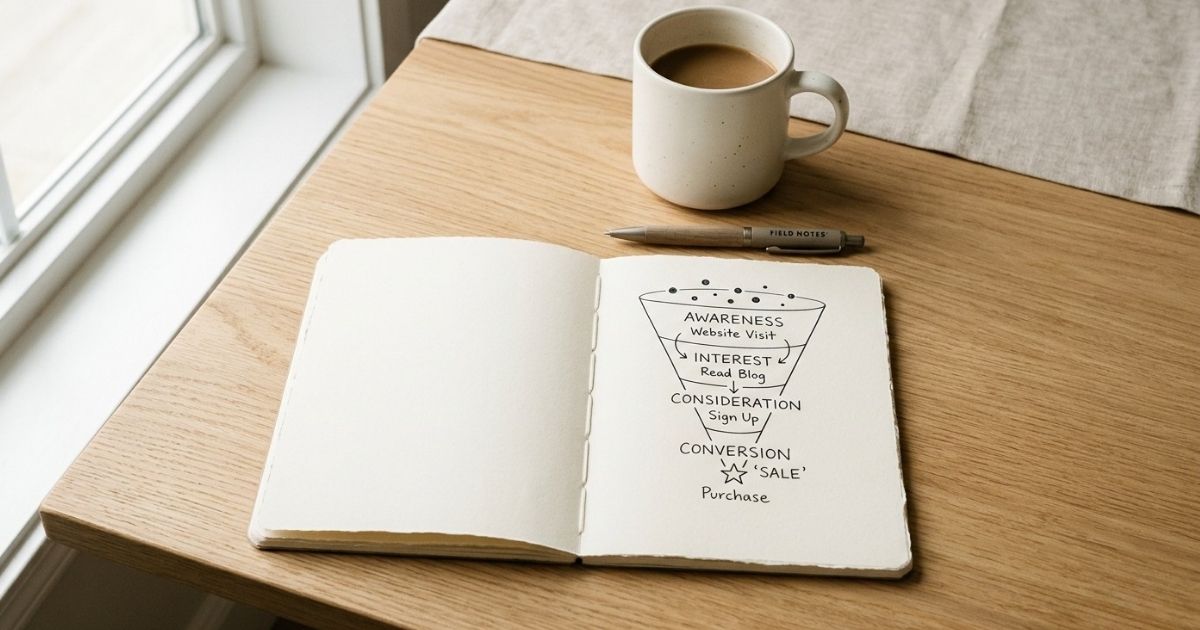 FIELD NOTES
AWARENESS
Website Visit
INTEREST
Read Blog
CONSIDERATION
Sign Up
CONVERSION
'SALE'
Purchase